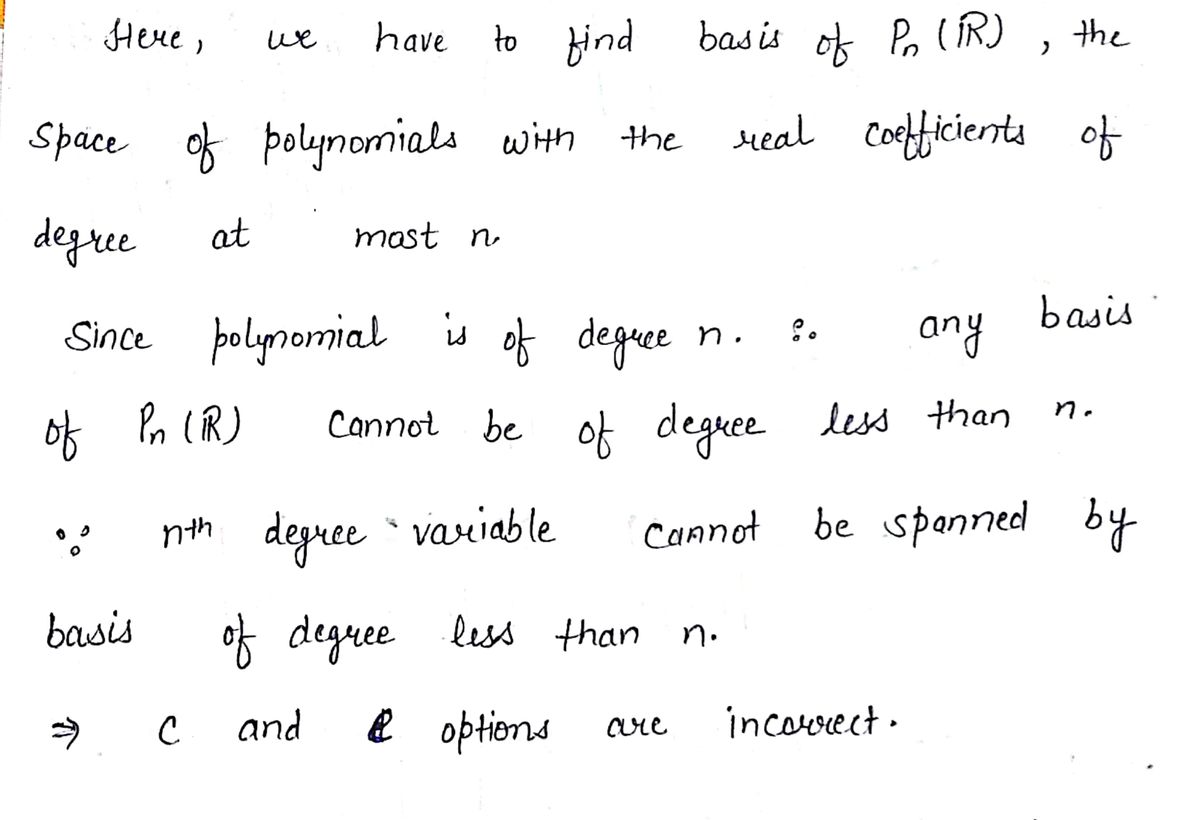 Here, we have to find basis of Pn (ℝ), the
Space of polynomials with the real coefficients of
degree at most n
Since polynomial is of degree n. ∴ any basis
of Pn (ℝ) Cannot be of degree less than n.
∵ nth degree variable cannot be spanned by
basis of degree less than n.
⇒ C and e options are incorrect.